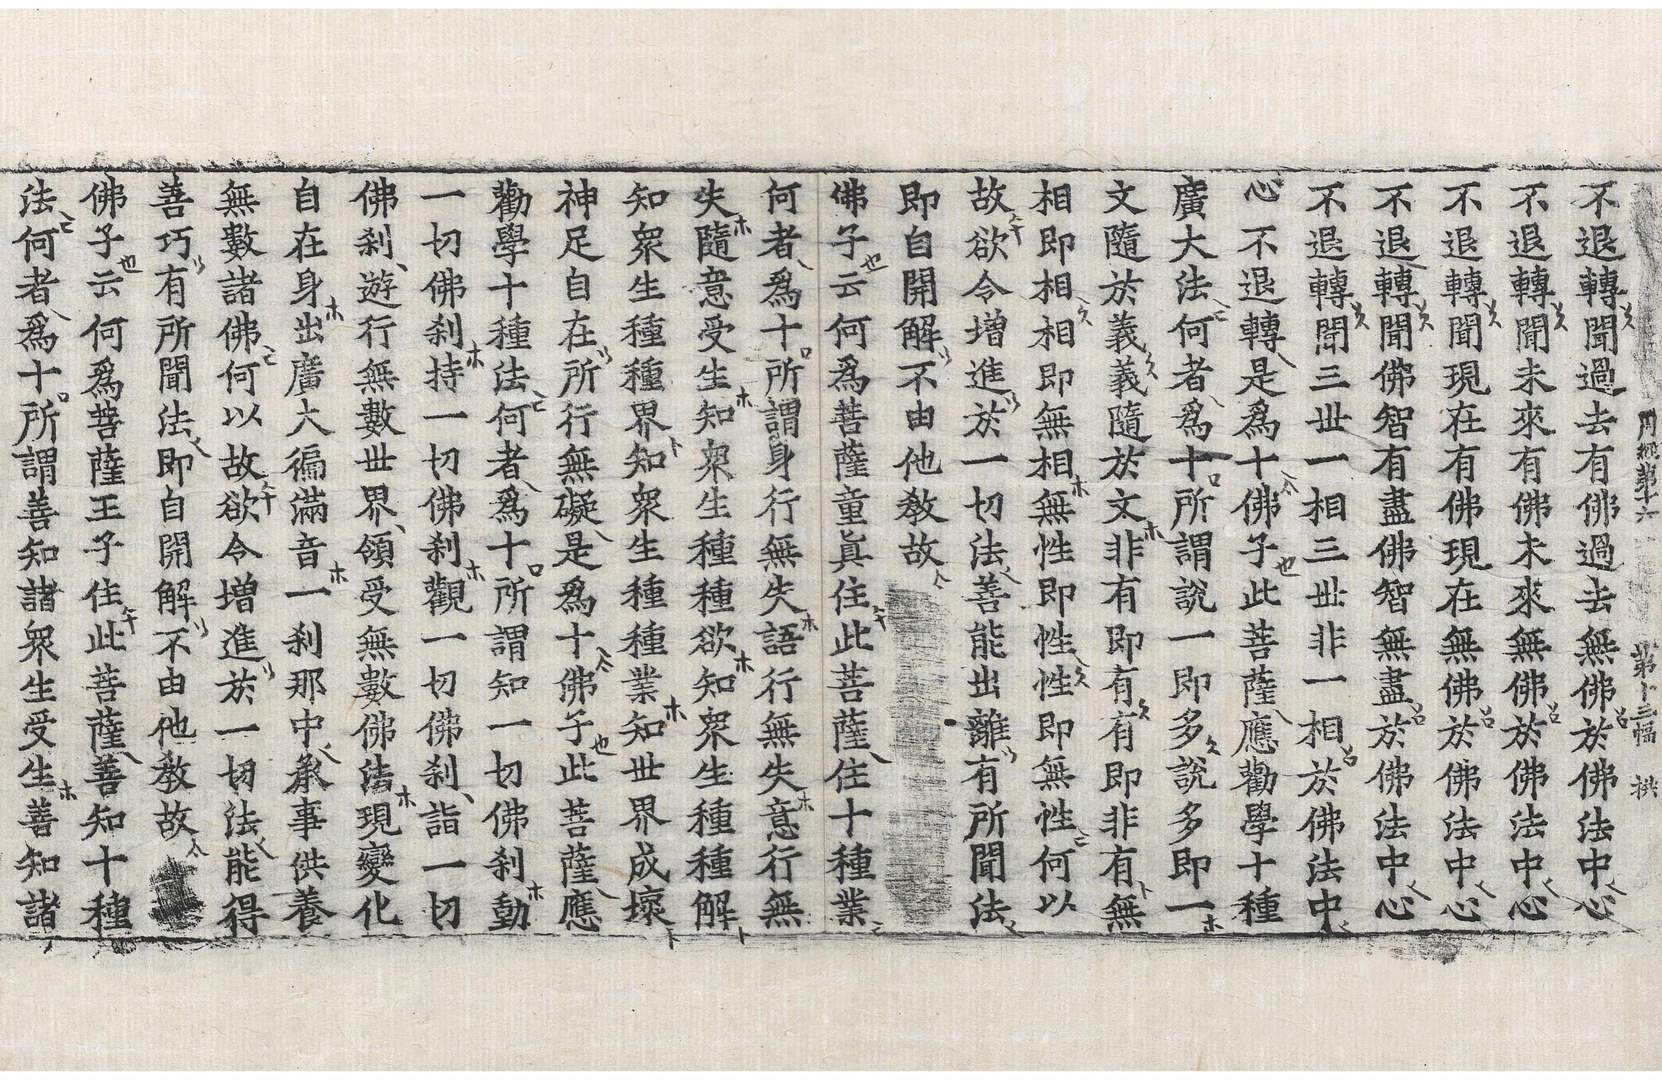 周經第十六 第十三幅 拱
不退轉聞過去有佛過去無佛於佛法中心
不退轉聞未來有佛未來無佛於佛法中心
不退轉聞現在有佛現在無佛於佛法中心
不退轉聞佛智有盡佛智無盡於佛法中心
不退轉聞三世一相三世非一相於佛法中
心不退轉是爲十佛子此菩薩應勸學十種
廣大法何者爲十所謂說一即多說多即一
文隨於義義隨於文非有即有有即非有無
相即相相即無相無性即性性即無性何以
故欲令增進於一切法善能出離有所聞法
即自開解不由他教故
佛子云何爲菩薩童眞住此菩薩住十種業
何者爲十所謂身行無失語行無失意行無
失隨意受生知衆生種種欲知衆生種種解
知衆生種種界知衆生種種業知世界成壞
神足自在所行無礙是爲十佛子此菩薩應
勸學十種法何者爲十所謂知一切佛刹動
一切佛刹持一切佛刹觀一切佛刹詣一切
佛刹遊行無數世界領受無數佛法現變化
自在身出廣大徧滿音一刹那中承事供養
無數諸佛何以故欲令增進於一切法能得
善巧有所聞法即自開解不由他教故
佛子云何爲菩薩王子住此菩薩善知十種
法何者爲十所謂善知諸衆生受生善知諸